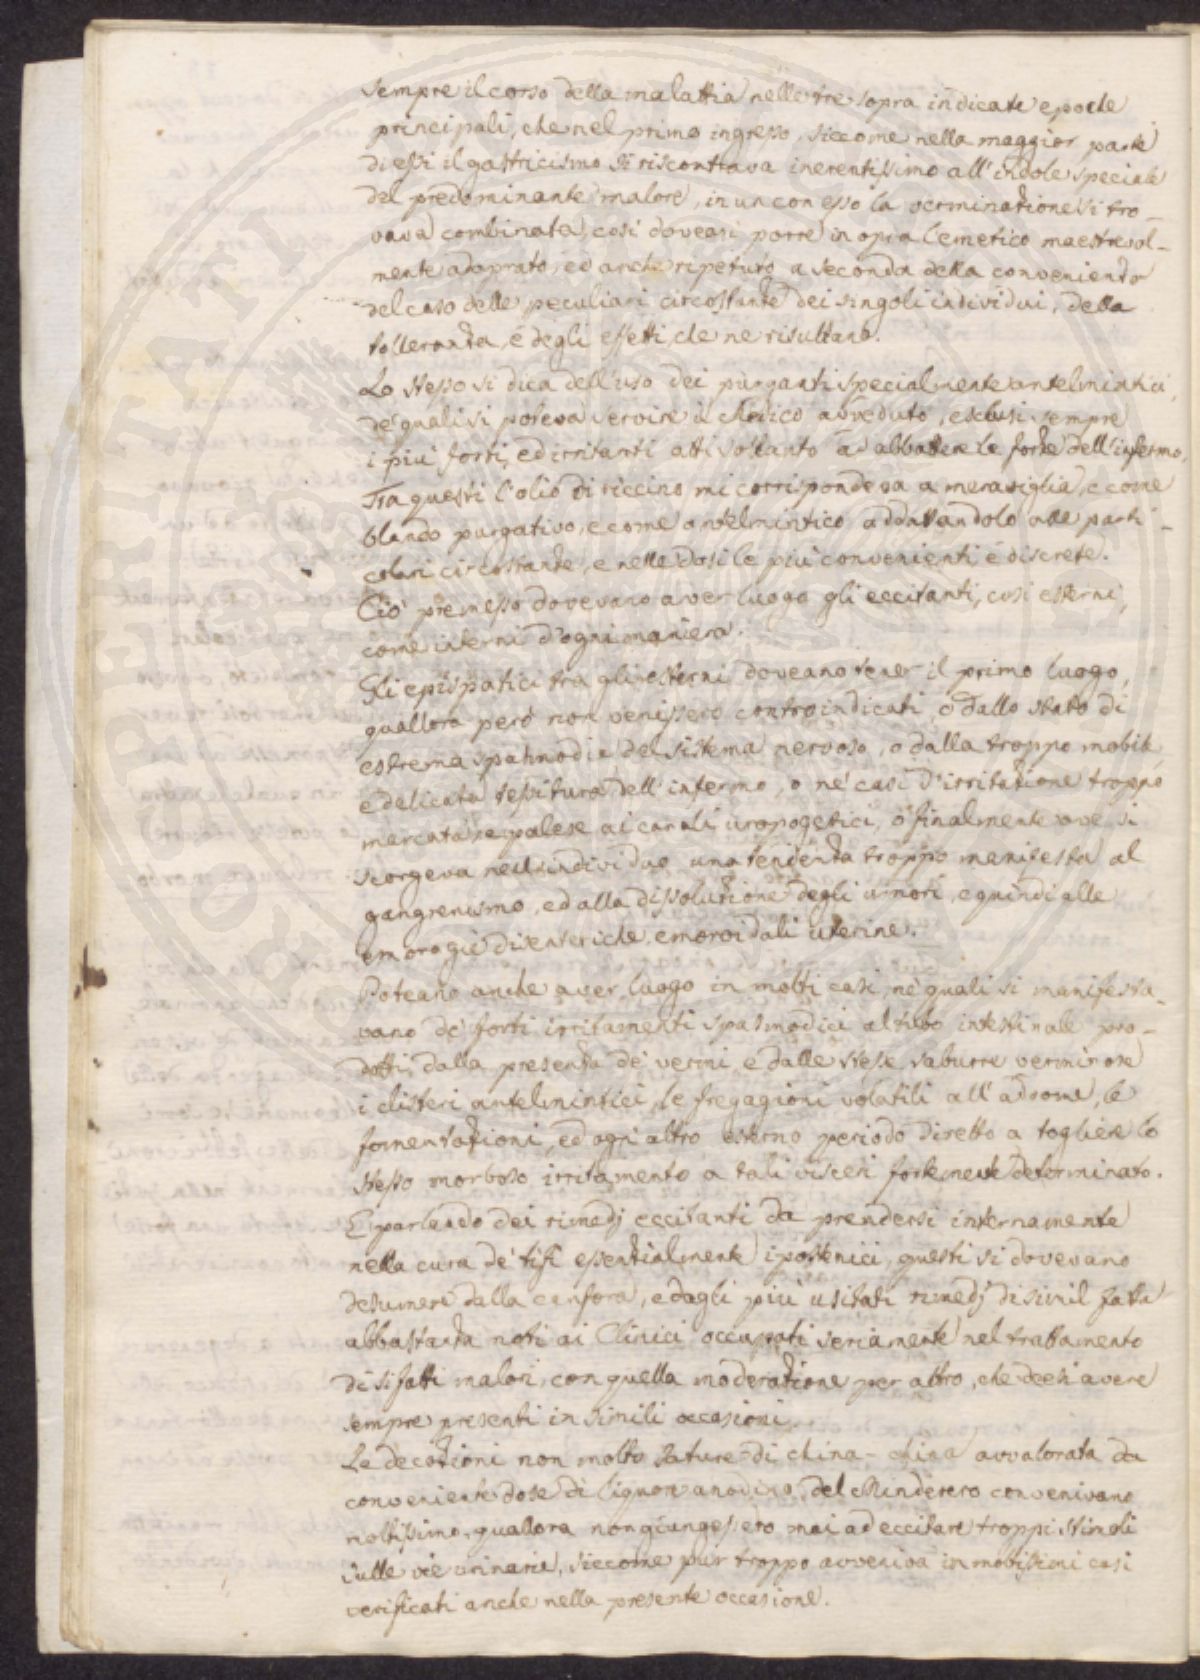 sempre il corso della malattia nelle tre sopra indicate epoche
principali, che nel primo ingresso, siccome nella maggior parte
di essi il gastricismo si riscontrava inerentissimo all'indole speciale
del predominante malore, in un con esso la verminazione si tro-
vava combinata, così doveasi porre in opra l'emetico maestrevol-
mente adoprato, ed anche ripetuto a seconda della convenienza
del caso delle peculiari circostanze dei singoli individui, della
tolleranza, e degli effetti, che ne risultano.
Lo stesso si dica dell'uso dei purganti specialmente antelmintici,
de' quali si poteva servire il Medico avveduto, esclusi sempre
i più forti, ed irritanti atti soltanto ad abbattere le forze dell'infermo,
Tra questi l'olio di riccino mi corrispondeva a meraviglia, e come
blando purgativo, e come antelmintico addattandolo alle parti-
colari circostanze, e nelle dosi le più convenienti e discrete.
Ciò premesso dovevano aver luogo gli eccitanti, così esterni,
come interni d'ogni maniera.
Gli epispatici tra gli esterni doveano tener il primo luogo,
quallora però non venissero controindicati, o dallo stato di
estrema spasmodia del sistema nervoso, o dalla troppo mobile
e delicata tessitura dell'infermo, o ne' casi d'irritazione troppo
marcata, e palese ai canali uropogetici, o finalmente ove si
scorgeva nell'individuo una tendenza troppo manifesta al
gangrenismo, ed alla dissoluzione degli umori, e quindi alle
emoragie disenteriche, emoroidali uterine.
Poteano anche aver luogo in molti casi, ne' quali si manifesta-
vano de' forti irritamenti spasmodici al tubo intestinale pro-
dotti dalla presenza de' vermi, e dalle stesse saburre verminose
i clisteri antelmintici, le fregagioni volatili all'adome, le
fomentazioni, ed ogni altro esterno periodo diretto a togliere lo
stesso morboso irritamento a tali visceri fortemente determinato.
E parlando dei rimedj eccitanti da prendersi internamente
nella cura de' tifi essenzialmente ipostenici, questi si dovevano
desumere dalla canfora, e dagli più usitati rimedj di simil fatta
abbastanza noti ai Clinici occupati seriamente nel trattamento
di sifatti malori, con quella moderazione per altro, che deesi avere
sempre presenti in simili occasioni.
Le decozioni non molto sature di china-china avvalorata da
conveniente dose di liquore anodino, del Minderero convenivano
moltissimo, quallora non giungessero mai ad eccitare troppi stimoli
sulle vie urinarie, siccome pur troppo avveniva in moltissimi casi
verificati anche nella presente occasione.